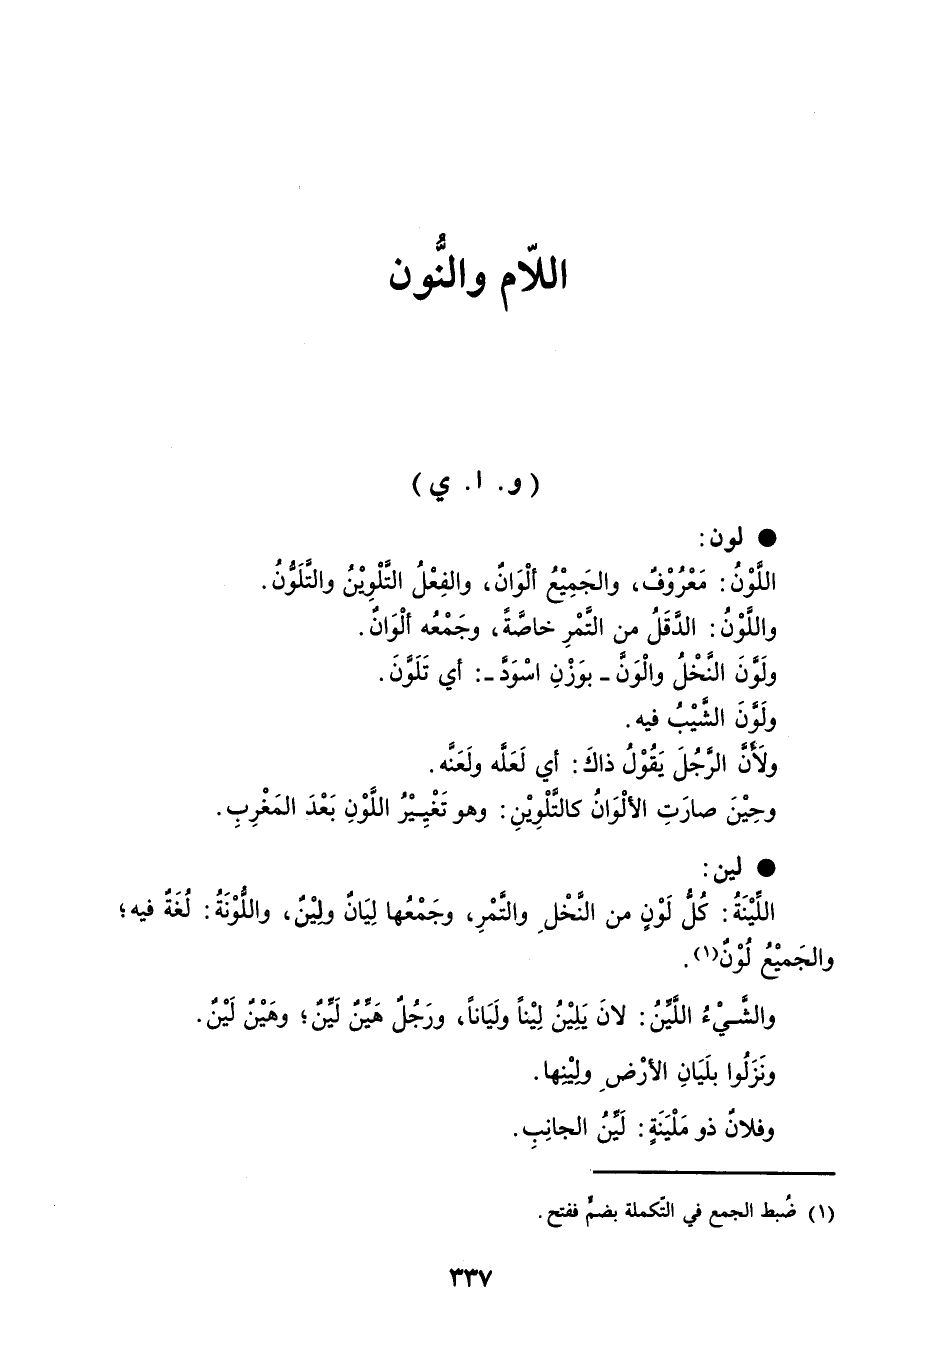 اللّام والنُّون
(و. ا. ي)
● لون:
اللَّوْنُ: مَعْرُوْفٌ، والجَمِيْعُ ألْوَانٌ، والفِعْلُ التَّلْوِيْنُ والتَّلَوُّنُ.
واللَّوْنُ: الدَّقَلُ من التَّمْرِ خاصَّةً، وجَمْعُه ألْوَانٌ.
ولَوَّنَ النَّخْلُ والْوَنَّ ـ بوَزْنِ اسْوَدَّ ـ: أي تَلَوَّنَ.
ولَوَّنَ الشَّيْبُ فيه.
ولَأَنَّ الرَّجُلَ يَقُوْلُ ذاكَ: أي لَعَلَّه ولَعَنَّه.
وحِيْنَ صارَتِ الألْوَانُ كالتَّلْوِيْنِ: وهو تَغْيِيْرُ اللَّوْنِ بَعْدَ المَغْرِبِ.
● لين:
اللِّيْنَةُ: كُلُّ لَوْنٍ من النَّخْلِ والتَّمْرِ، وجَمْعُها لِيَانٌ ولِيْنٌ، واللُّوْنَةُ: لُغَةٌ فيه؛
والجَمِيْعُ لُوْنٌ(١).
والشَّيْءُ اللَّيِّنُ: لانَ يَلِيْنُ لِيْناً ولَيَاناً، ورَجُلٌ هَيِّنٌ لَيِّنٌ؛ وهَيْنٌ لَيْنٌ.
ونَزَلُوا بلَيَانِ الأرْضِ ولِيْنِها.
وفلانٌ ذو مَلْيَنَةٍ: لَيِّنُ الجانِبِ.
(١) ضُبط الجمع في التّكملة بضمٍّ ففتح.
٣٣٧